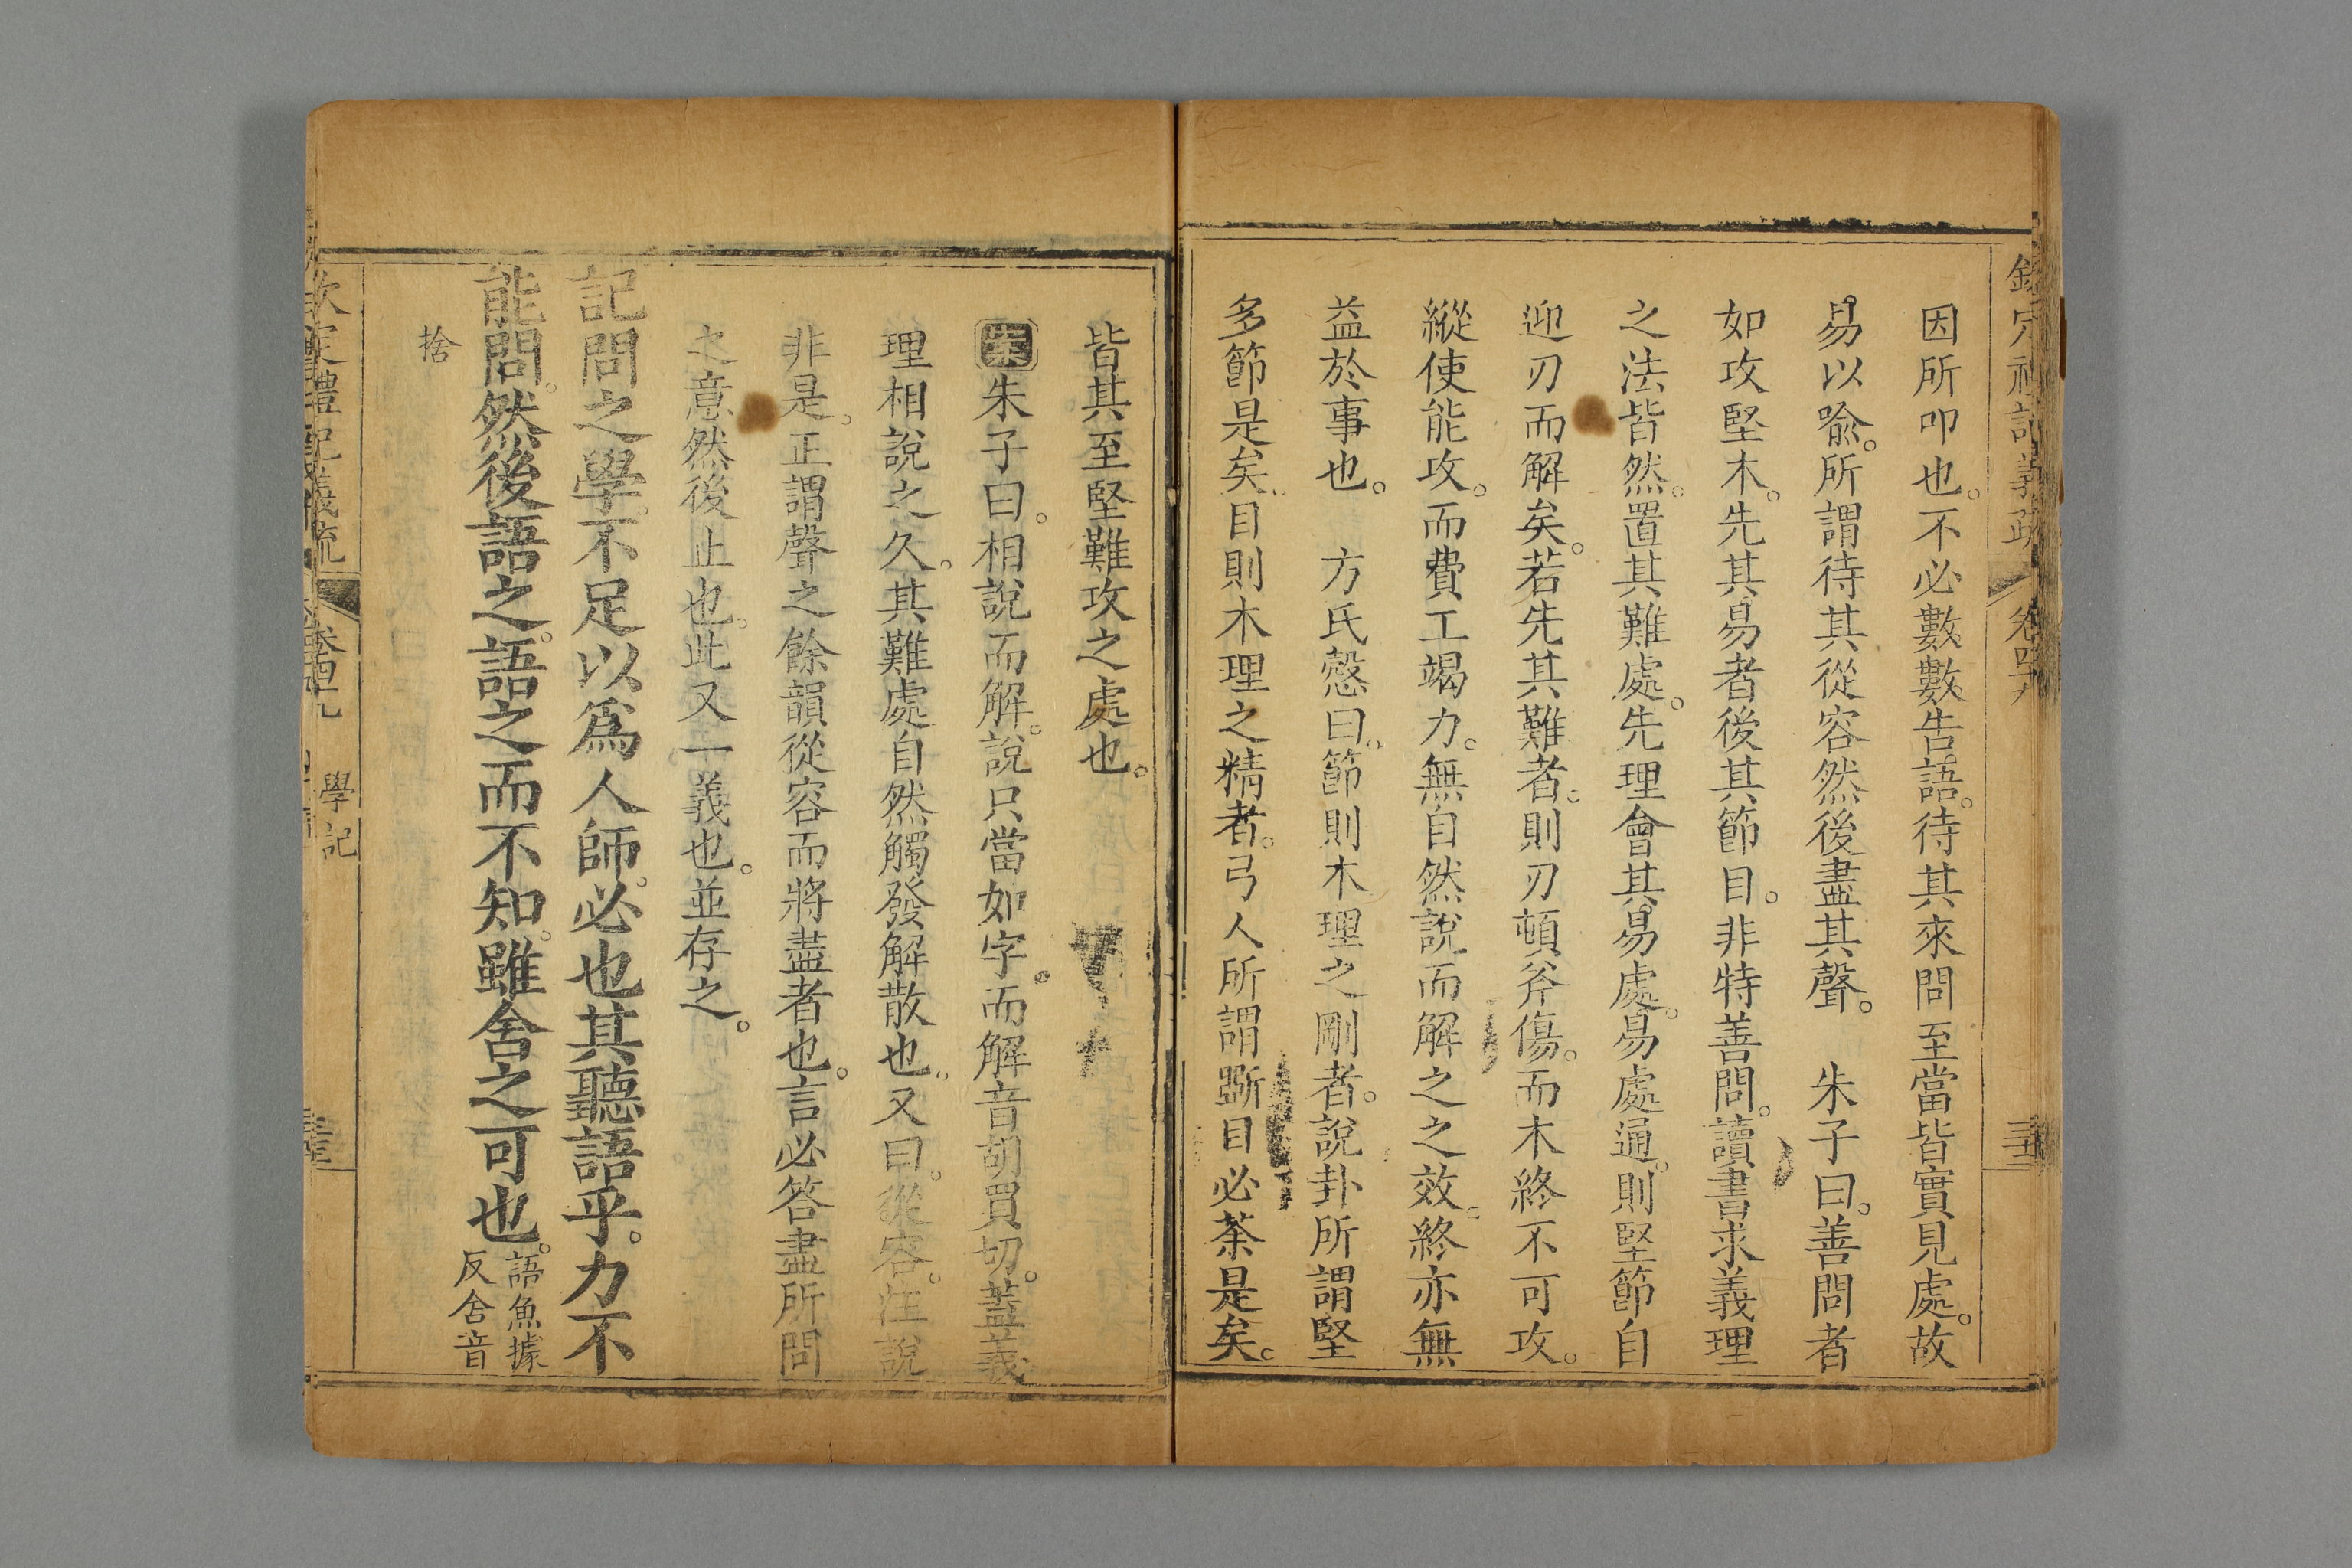 因所叩也。不必數數告語。待其來問至當皆實見處。故
易以喩。所謂待其從容然後盡其聲。 朱子曰。善問者
如攻堅木。先其易者後其節目。非特善問。讀書求義理
之法皆然。置其難處。先理會其易處。易處通。則堅節自
迎刃而解矣。若先其難者。則刃頓斧傷。而木終不可攻。
縱使能攻。而費工竭力。無自然說而解之之效。終亦無
益於事也。 方氏慤曰。節則木理之剛者。說卦所謂堅
多節是矣。目則木理之精者。弓人所謂斲目必荼是矣。
皆其至堅難攻之處也。
朱子曰。相說而解。說只當如字。而解音胡買切。蓋義
理相說之久。其難處自然觸發解散也。又曰。從容。注說
非是。正謂聲之餘韻從容而將盡者也。言必答盡所問
之意然後止也。此又一義也。並存之。
記問之學。不足以爲人師。必也其聽語乎。力不
能問。然後語之。語之而不知。雖舍之可也。語魚據
反舍音
捨
欽定禮記義疏
卷四十九
學記